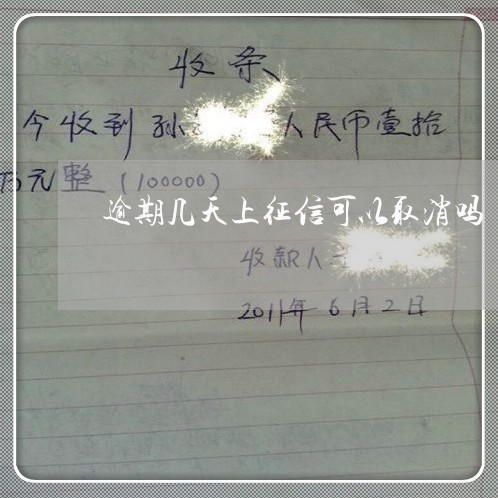 收条
今收到孙 人民币壹拾
万元整(100000)
逾期几天上征信可以取消吗
收款人
2011年6月2日